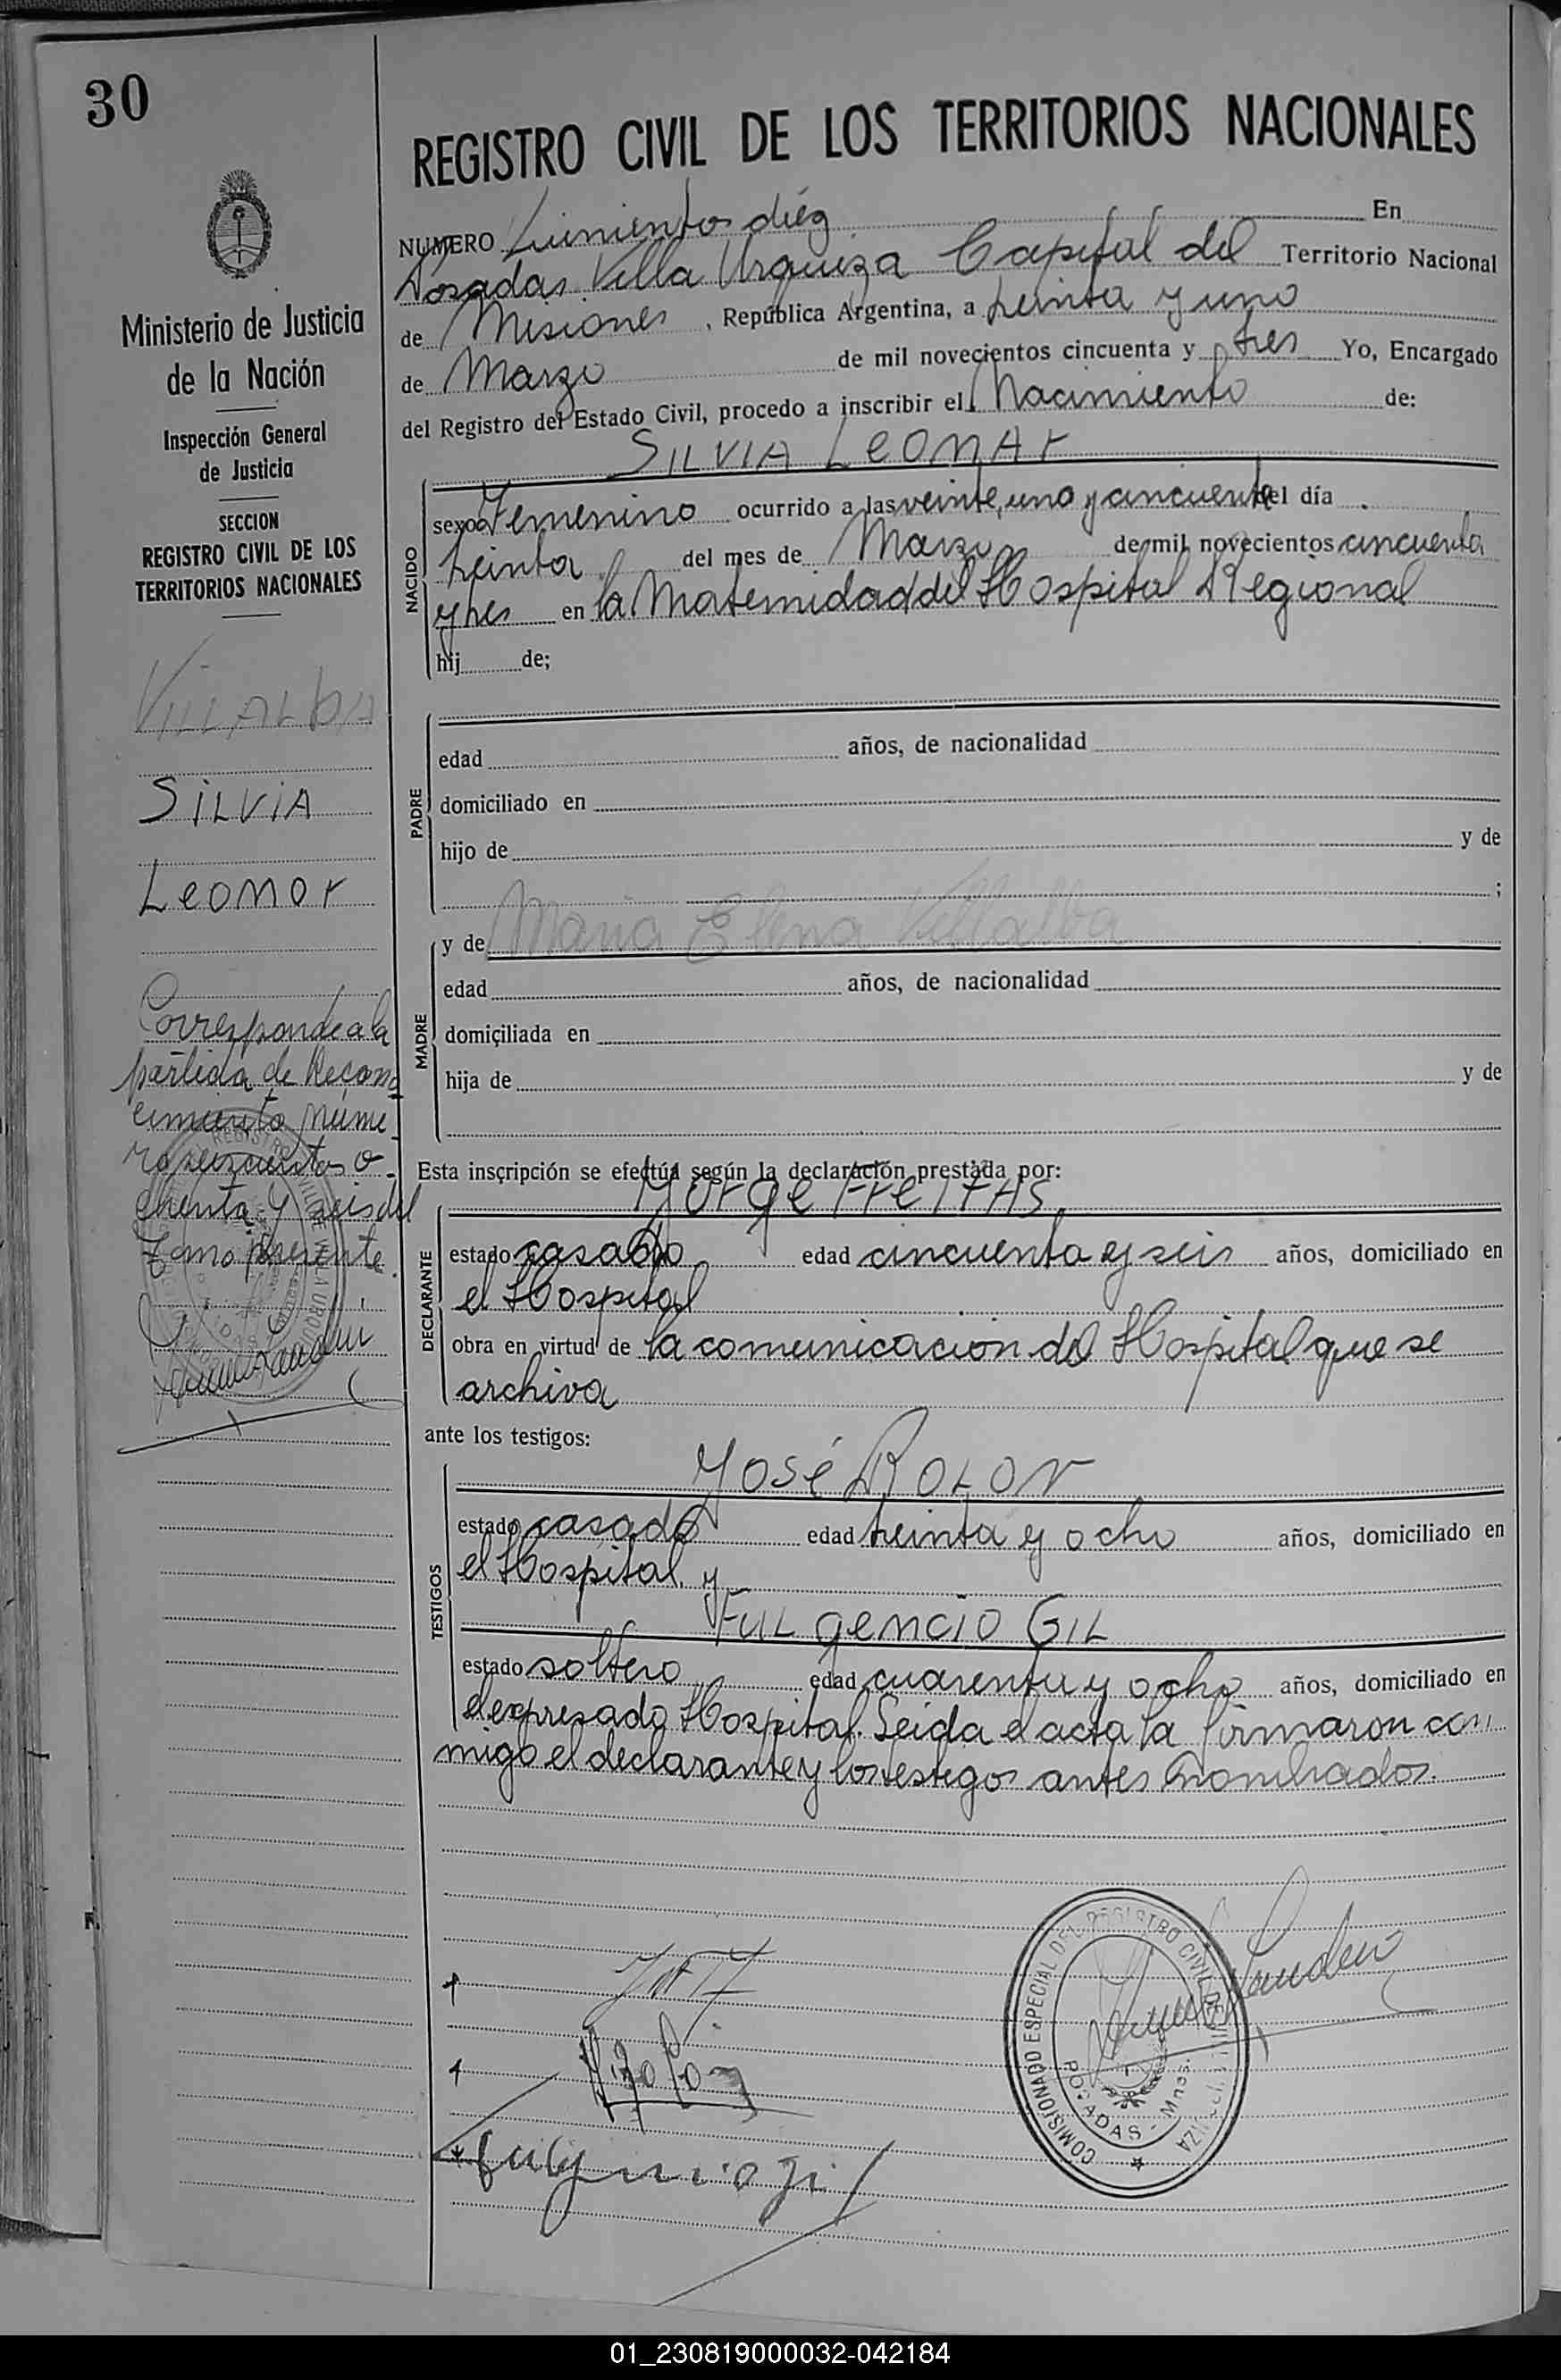 30
Ministerio de Justicia
de la Nación
Inspección General
de Justicia
SECCION
REGISTRO CIVIL DE LOS
TERRITORIOS NACIONALES
VILLALBA
SILVIA
Leonor
Corresponde a la
partida de Recono
cimiento núme-
ro seiscientos o-
chenta y seis del
tomo presente.
REGISTRO CIVIL DE LOS TERRITORIOS NACIONALES
NUMERO diez En
Posadas Villa Urquiza Capital del Territorio Nacional
de Misiones, República Argentina, a treinta y uno
de Marzo de mil novecientos cincuenta y tres Yo, Encargado
del Registro del Estado Civil, procedo a inscribir el Nacimiento de:
SILVIA LEONAR
NACIDO
sexo Femenino ocurrido a las veinte, uno y cincuenta del día
treinta del mes de Marzo de mil novecientos cincuenta
y tres en la Maternidad del Hospital Regional
hij de;
PADRE
edad años, de nacionalidad
domiciliado en
hijo de y de
;
MADRE
y de Maria Elena Villalba
edad años, de nacionalidad
domiciliada en
hija de y de
Esta inscripción se efectúa según la declaración prestada por:
Jorge Freitas
DECLARANTE
estado casado edad cincuenta y seis años, domiciliado en
el Hospital
obra en virtud de la comunicacion del Hospital que se
archiva
ante los testigos:
José ROLON
TESTIGOS
estado casado edad treinta y ocho años, domiciliado en
el Hospital y
FULgencio GIL
estado soltero edad cuarenta y ocho años, domiciliado en
el expresado Hospital. Leida el acta la firmaron con
migo el declarante y los testigos antes nombrados.
COMISIONADO ESPECIAL DEL REGISTRO CIVIL DE VILLA URQUIZA
POSADAS - Mnes.
01_230819000032-042184